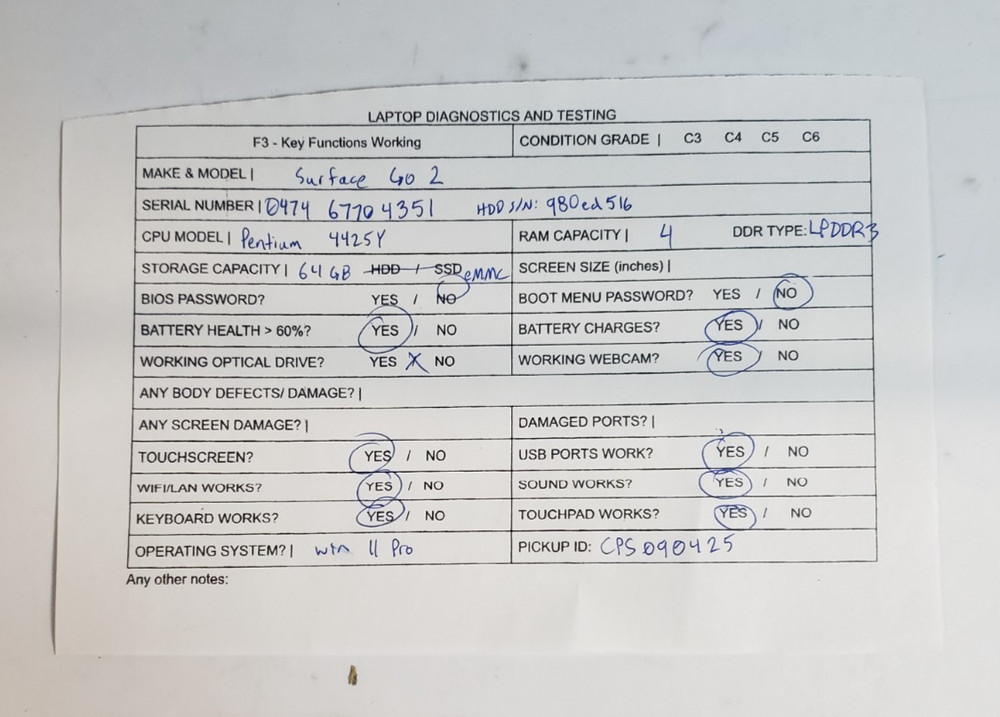 LAPTOP DIAGNOSTICS AND TESTING
F3 - Key Functions Working CONDITION GRADE | C3 C4 C5 C6
MAKE & MODEL | Surface Go 2
SERIAL NUMBER | 0474 6770 4351 HDD S/N: 980ed516
CPU MODEL | Pentium 4425Y RAM CAPACITY | 4 DDR TYPE: LPDDR3
STORAGE CAPACITY | 64 GB HDD / SSD eMMC SCREEN SIZE (inches) |
BIOS PASSWORD? YES / NO BOOT MENU PASSWORD? YES / NO
BATTERY HEALTH > 60%? YES / NO BATTERY CHARGES? YES / NO
WORKING OPTICAL DRIVE? YES X NO WORKING WEBCAM? YES / NO
ANY BODY DEFECTS/ DAMAGE? |
ANY SCREEN DAMAGE? | DAMAGED PORTS? |
TOUCHSCREEN? YES / NO USB PORTS WORK? YES / NO
WIFI/LAN WORKS? YES / NO SOUND WORKS? YES / NO
KEYBOARD WORKS? YES / NO TOUCHPAD WORKS? YES / NO
OPERATING SYSTEM? | win 11 Pro PICKUP ID: CPS090425
Any other notes: